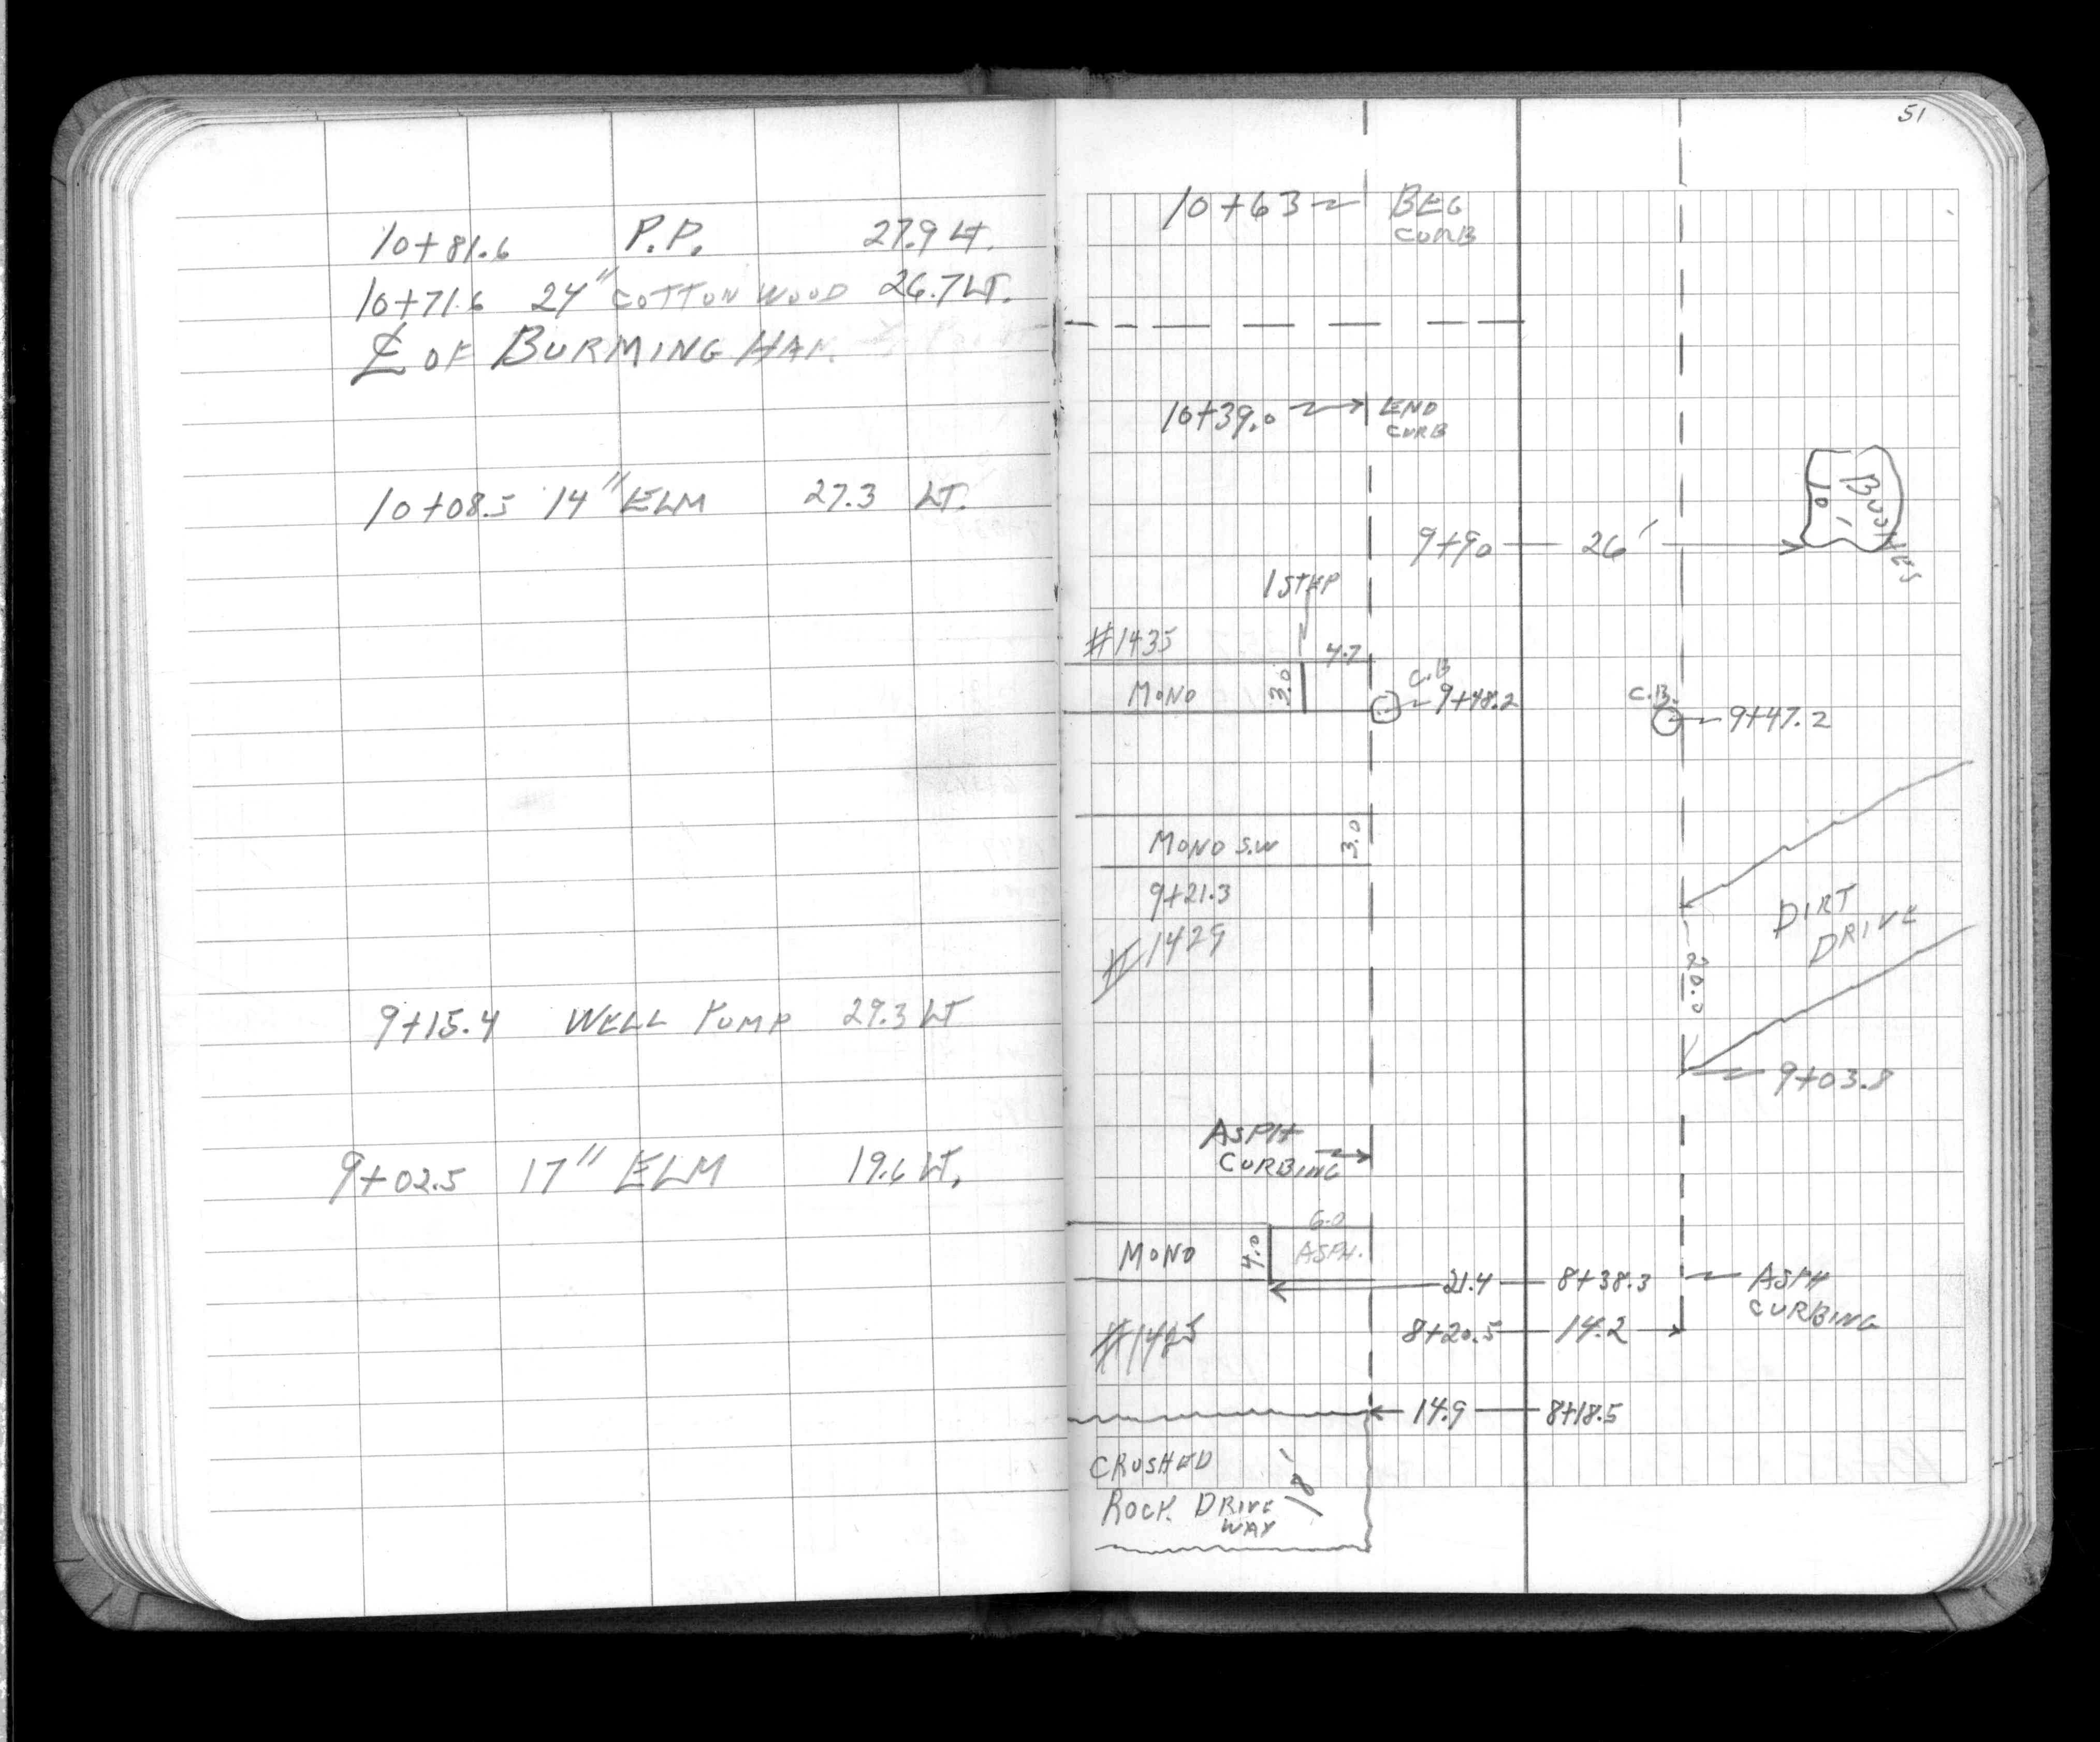 10+81.6 P.P. 27.9 LT.
10+71.6 24" COTTON WOOD 26.7 LT.
℄ OF BURMING HAM
10+08.5 14" ELM 27.3 LT.
9+15.4 WELL PUMP 29.3 LT
9+02.5 17" ELM 19.6 LT.
51
10+63 BEG
CURB
10+39.0 END
CURB
BUSHES
10'
9+90 26'
1 STEP
#1435
4.7
MONO 3.0
C.B
9+48.2
C.B.
9+47.2
MONO S.W 3.0
9+21.3
#1429
DIRT
DRIVE
20.0
9+03.8
ASPH
CURBING
6.0
MONO 4.0 ASPH.
21.4 8+38.3 ASPH
CURBING
8+20.5 14.2
14.9 8+18.5
CRUSHED
ROCK DRIVE
WAY
18'